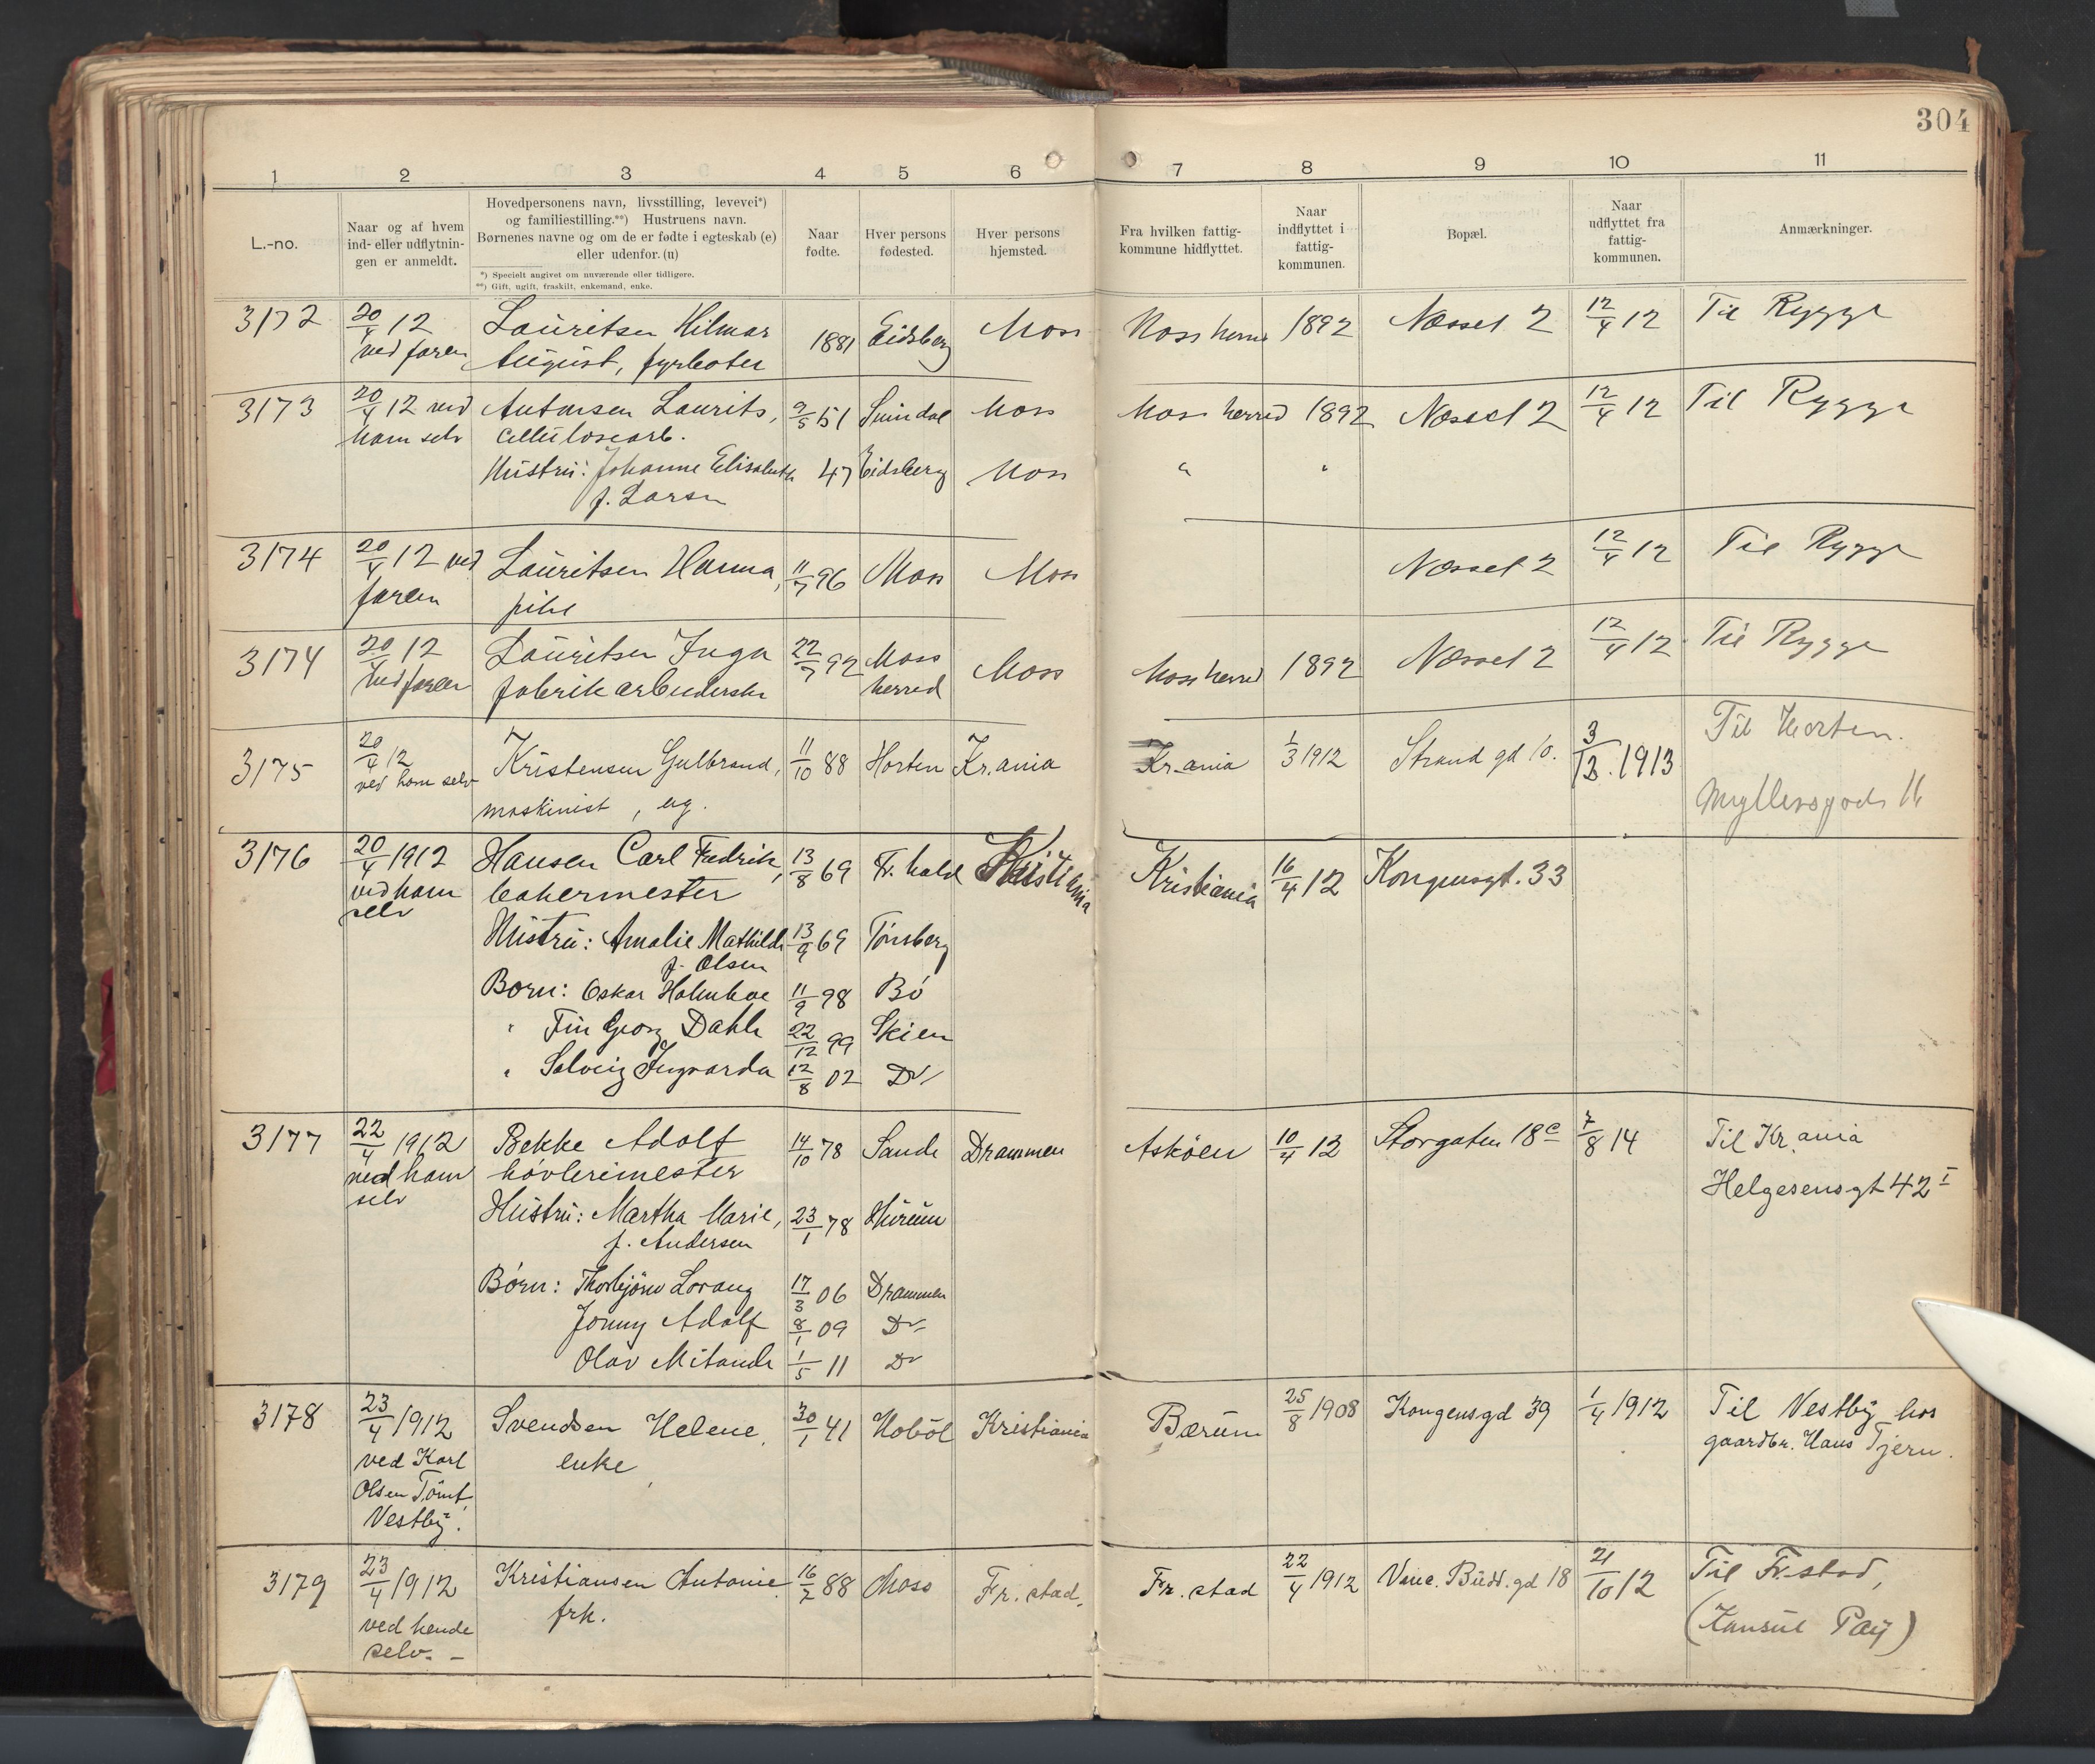 304
1 2 3 4 5 6 7 8 9 10 11
L.-no.
Naar og af hvem
ind- eller udflytnin-
gen er anmeldt.
Hovedpersonens navn, livsstilling, levevei*)
og familiestilling.**) Hustruens navn.
Børnenes navne og om de er fødte i egteskab (e)
eller udenfor. (u)
*) Specielt angivet om nuværende eller tidligere.
**) Gift, ugift, fraskilt, enkemand, enke.
Naar
fødte.
Hver persons
fødested.
Hver persons
hjemsted.
Fra hvilken fattig-
kommune hidflyttet.
Naar
indflyttet i
fattig-
kommunen.
Bopæl.
Naar
udflyttet fra
fattig-
kommunen.
Anmærkninger.
3172 20/4 12 Lauritsen Hilmar 1881 Eidsberg Moss Moss herred 1892 Næsset 2 12/4 12 Til Rygge
ved faren August, fyrbøter
3173 20/4 12 ved Antonsen Laurits, 9/5 51 Svindal Moss Moss herred 1892 Næsset 2 12/4 12 Til Rygge
ham selv cellulosearb.
Hustru: Johanne Elisabeth 47 Eidsberg Moss " "
f. Larsen
3174 20/4 12 ved Lauritsen Hanna, 11/7 96 Moss Moss Næsset 2 12/4 12 Til Rygge
faren pike
3174 20/4 12 Lauritsen Inga 22/7 92 Moss Moss Moss herred 1892 Næsset 2 12/4 12 Til Rygge
ved faren fabrikarbeiderske herred
3175 20/4 12 Kristensen Gulbrand, 11/10 88 Horten Kr.ania Kr.ania 1/3 1912 Strand gd 10. 3/12. 1913 Til Horten.
ved ham selv maskinist, ug. Myllersgade 11
3176 20/4 1912 Hansen Carl Fredrik, 13/8 69 Fr. hald Kristiania Kristiania 16/4 12 Kongensgt. 33
ved ham bakermester
selv
Hustru: Amalie Mathilde 13/9 69 Tønsberg
f. Olsen
Børn: Oskar Holmboe 11/9 98 Bø
" Fin Georg Dahle 22/12 99 Skien
" Solveig Ingvarda 12/8 02 Do
3177 22/4 1912 Bekke Adolf 14/10 78 Sande Drammen Askøen 10/4 12 Storgaten 18c 7/8 14 Til Kr.ania
ved ham høvlerimester Helgesensgt 42 I
selv
Hustru: Martha Marie, 23/1 78 Hurum
f. Andersen
Børn: Thorbjørn Lorang 17/3 06 Drammen
Jonny Adolf 8/1 09 Do
Olav Mitande 1/5 11 Do
3178 23/4 1912 Svendsen Helene, 30/1 41 Hobøl Kristiania Bærum 25/8 1908 Kongensgd 39 1/4 1912 Til Vestby hos
ved Karl enke gaardbr. Hans Tjern.
Olsen Tømt,
Vestby.
3179 23/4 1912 Kristiansen Antonie 16/7 88 Moss Fr. stad. Fr. stad 22/4 1912 Vinc. Budd. gd 18 21/10 12 Til Fr.stad,
ved hende frk. (Konsul Pay)
selv.